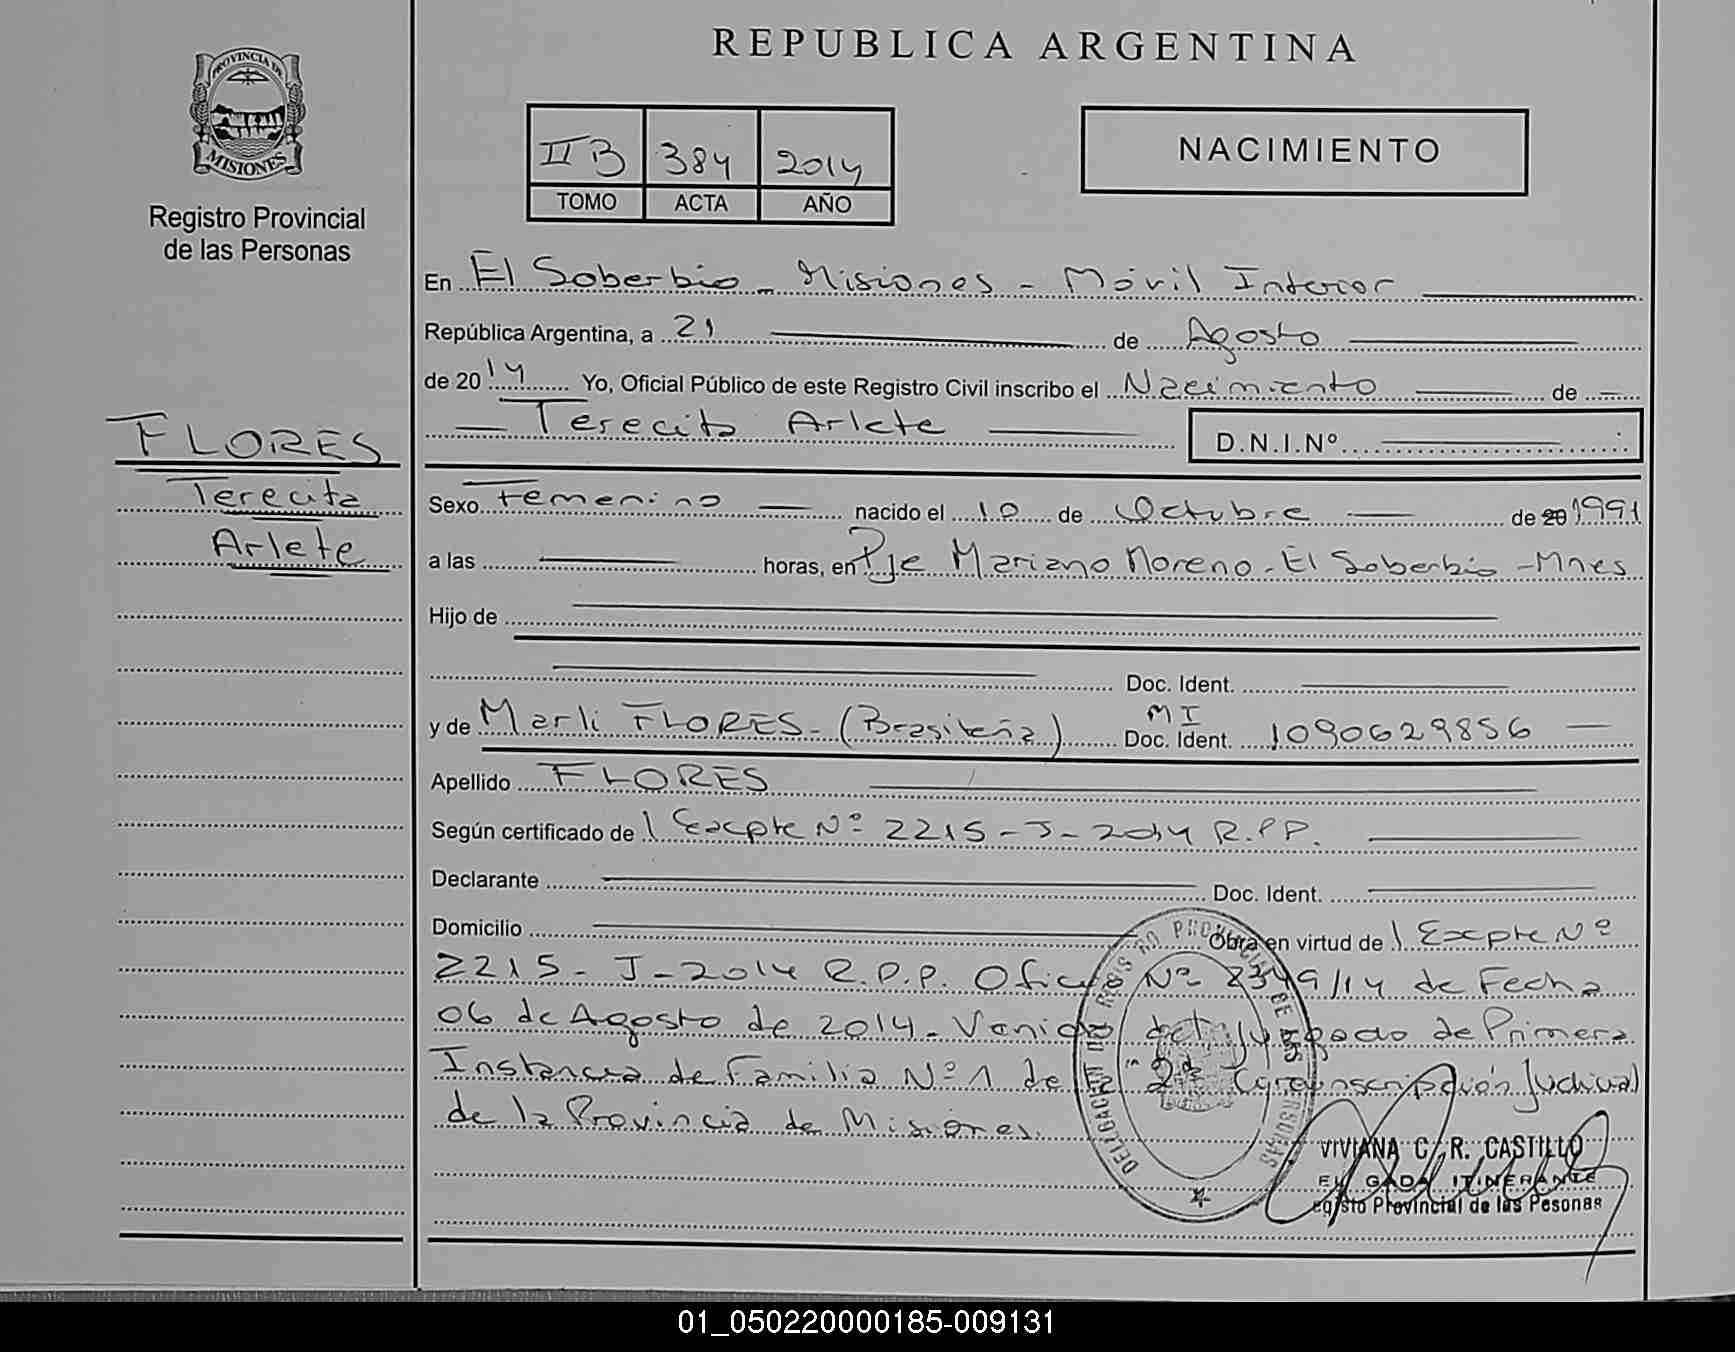 REPUBLICA ARGENTINA
PROVINCIA DE
MISIONES
Registro Provincial
de las Personas
II B 384 2014
TOMO ACTA AÑO
NACIMIENTO
En El Soberbio - Misiones - Móvil Interior
República Argentina, a 21 de Agosto
de 2014 Yo, Oficial Público de este Registro Civil inscribo el Nacimiento de
Terecita Arlete D.N.I.Nº
FLORES
Terecita
Arlete
Sexo Femenino nacido el 10 de Octubre de 20 1991
a las horas, en Pje Mariano Moreno - El Soberbio - Mnes
Hijo de
Doc. Ident.
y de Marli FLORES - (Brasileña) MI Doc. Ident. 1090629856
Apellido FLORES
Según certificado de / Excpte Nº 2215 - J - 2014 R.P.P.
Declarante Doc. Ident.
Domicilio Obra en virtud de / Excpte Nº
2215 - J - 2014 R.P.P. Oficio Nº 2349/14 de Fecha
06 de Agosto de 2014 - Venido del Juzgado de Primera
Instancia de Familia Nº 1 de la 2da Circunscripción Judicial
de la Provincia de Misiones.
VIVIANA C. R. CASTILLO
GADA ITINERANTE
egisto Provincial de las Pesonas
01_050220000185-009131